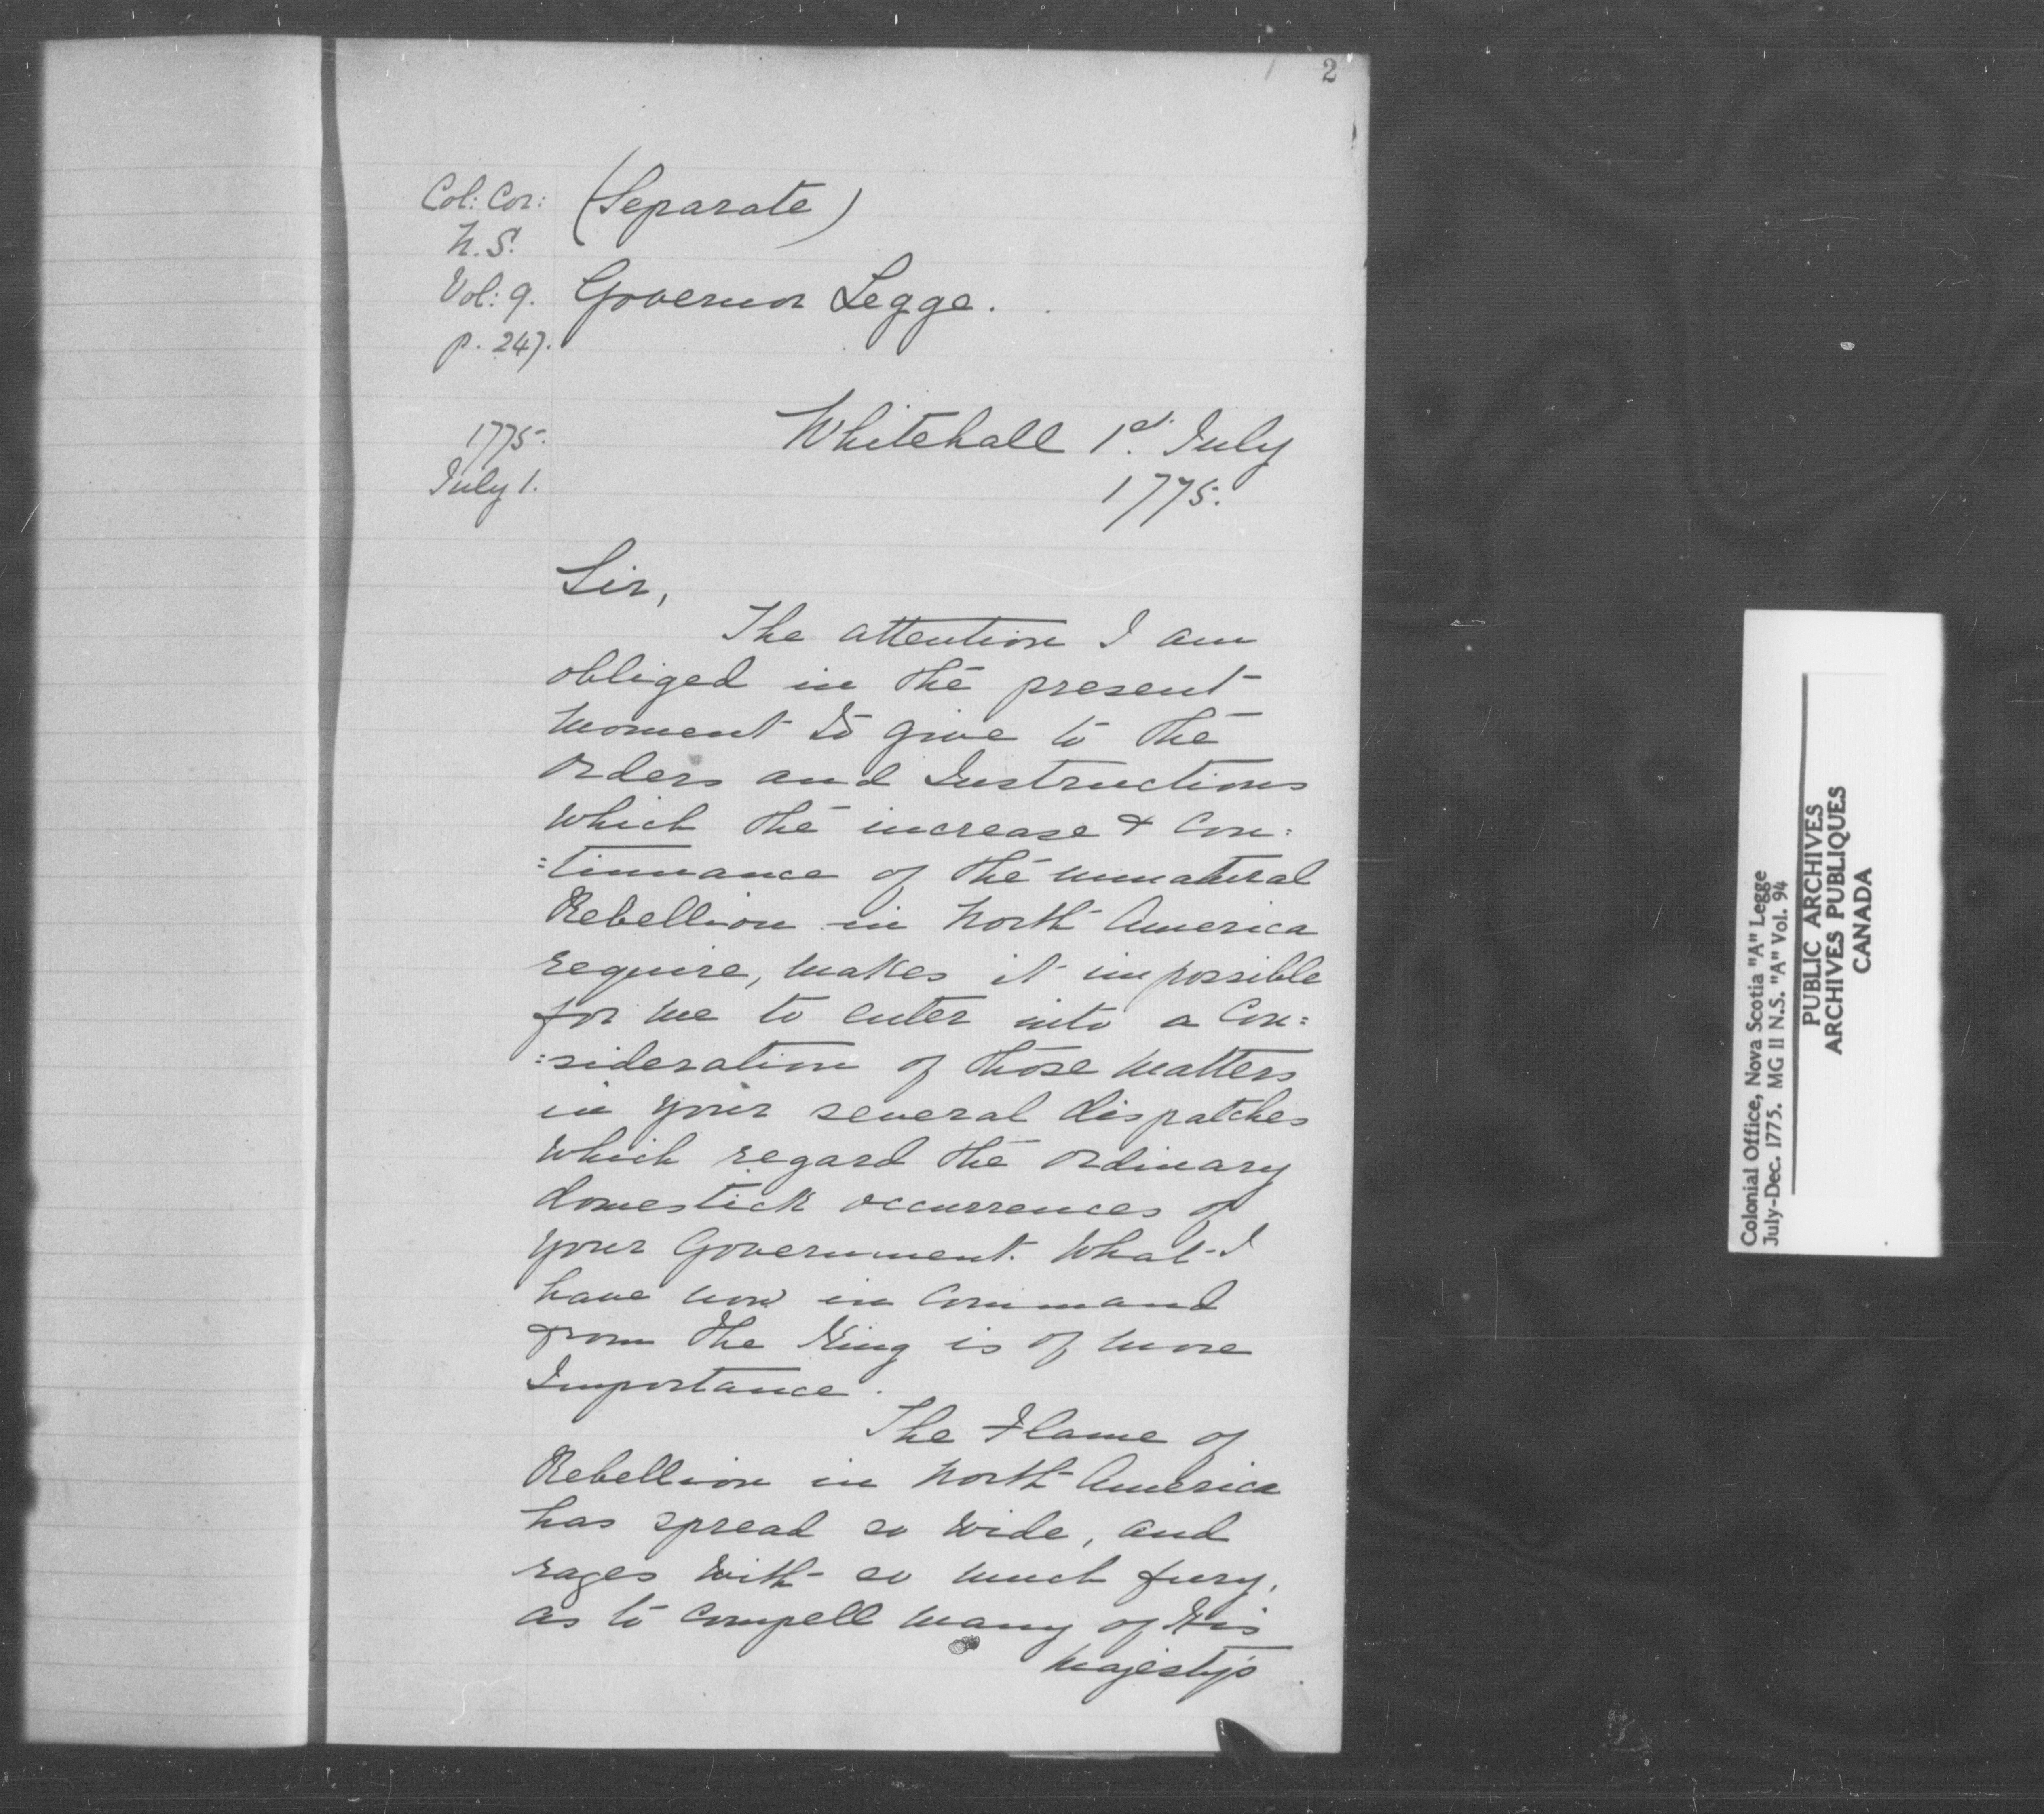 2
Col: Cor:
N.S.
Vol: 9.
p. 247.
(Separate)
Governor Legge.
1775.
July 1.
Whitehall 1st. July
1775.
Sir,
The attention I am
obliged in the present
moment to give to the
orders and Instructions
which the increase & Con:
:tinuance of the unnatural
Rebellion in North America
require, makes it impossible
for me to enter into a Con:
:sideration of those matters
in your several dispatches
which regard the ordinary
domestick occurrences of
your Government. What I
have now in Command
from the King is of more
Importance.
The Flame of
Rebellion in North America
has spread so wide, and
rages with so much fury,
as to compell many of His
Majesty's
Colonial Office, Nova Scotia "A" Legge
July-Dec. 1775. MG 11 N.S. "A" Vol. 94
PUBLIC ARCHIVES
ARCHIVES PUBLIQUES
CANADA